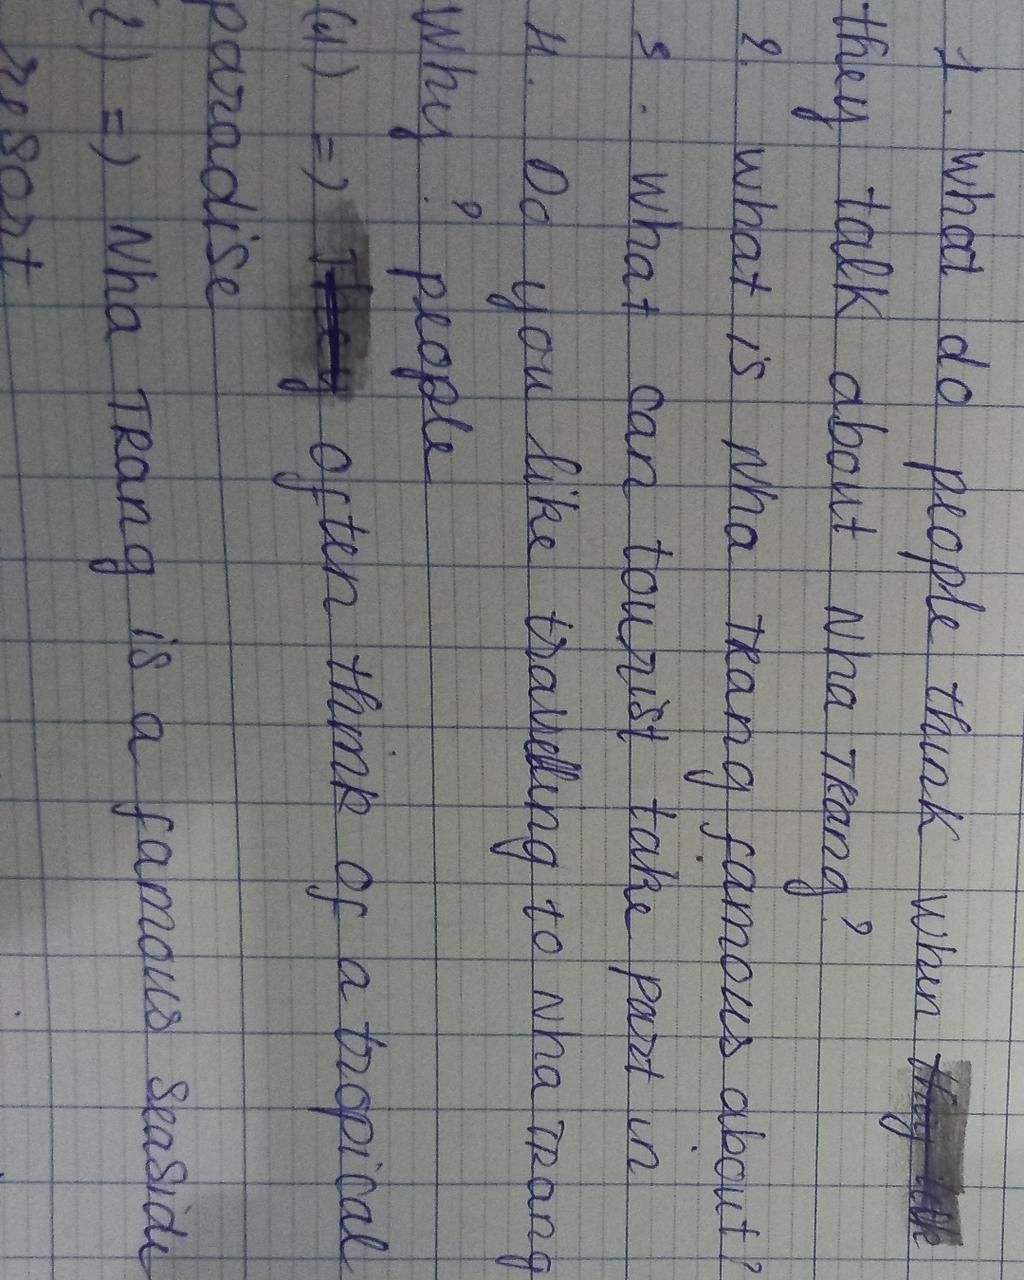 1. what do people think when
they talk about Nha Trang?
2. what is Nha Trang famous about?
3. what can tourist take part in
4. Do you like travelling to Nha Trang
Why? people
(1) => They often think of a tropical
paradise
2) => Nha Trang is a famous seaside
resort